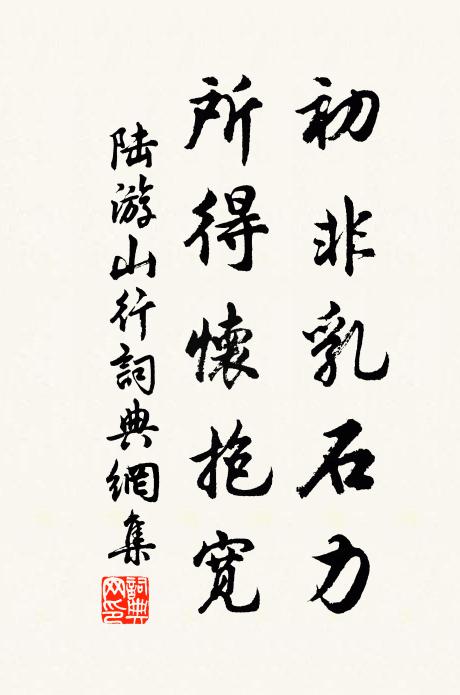 初非乳石力
所得懷抱寬
陆游山行詞典網集
詞典
网印